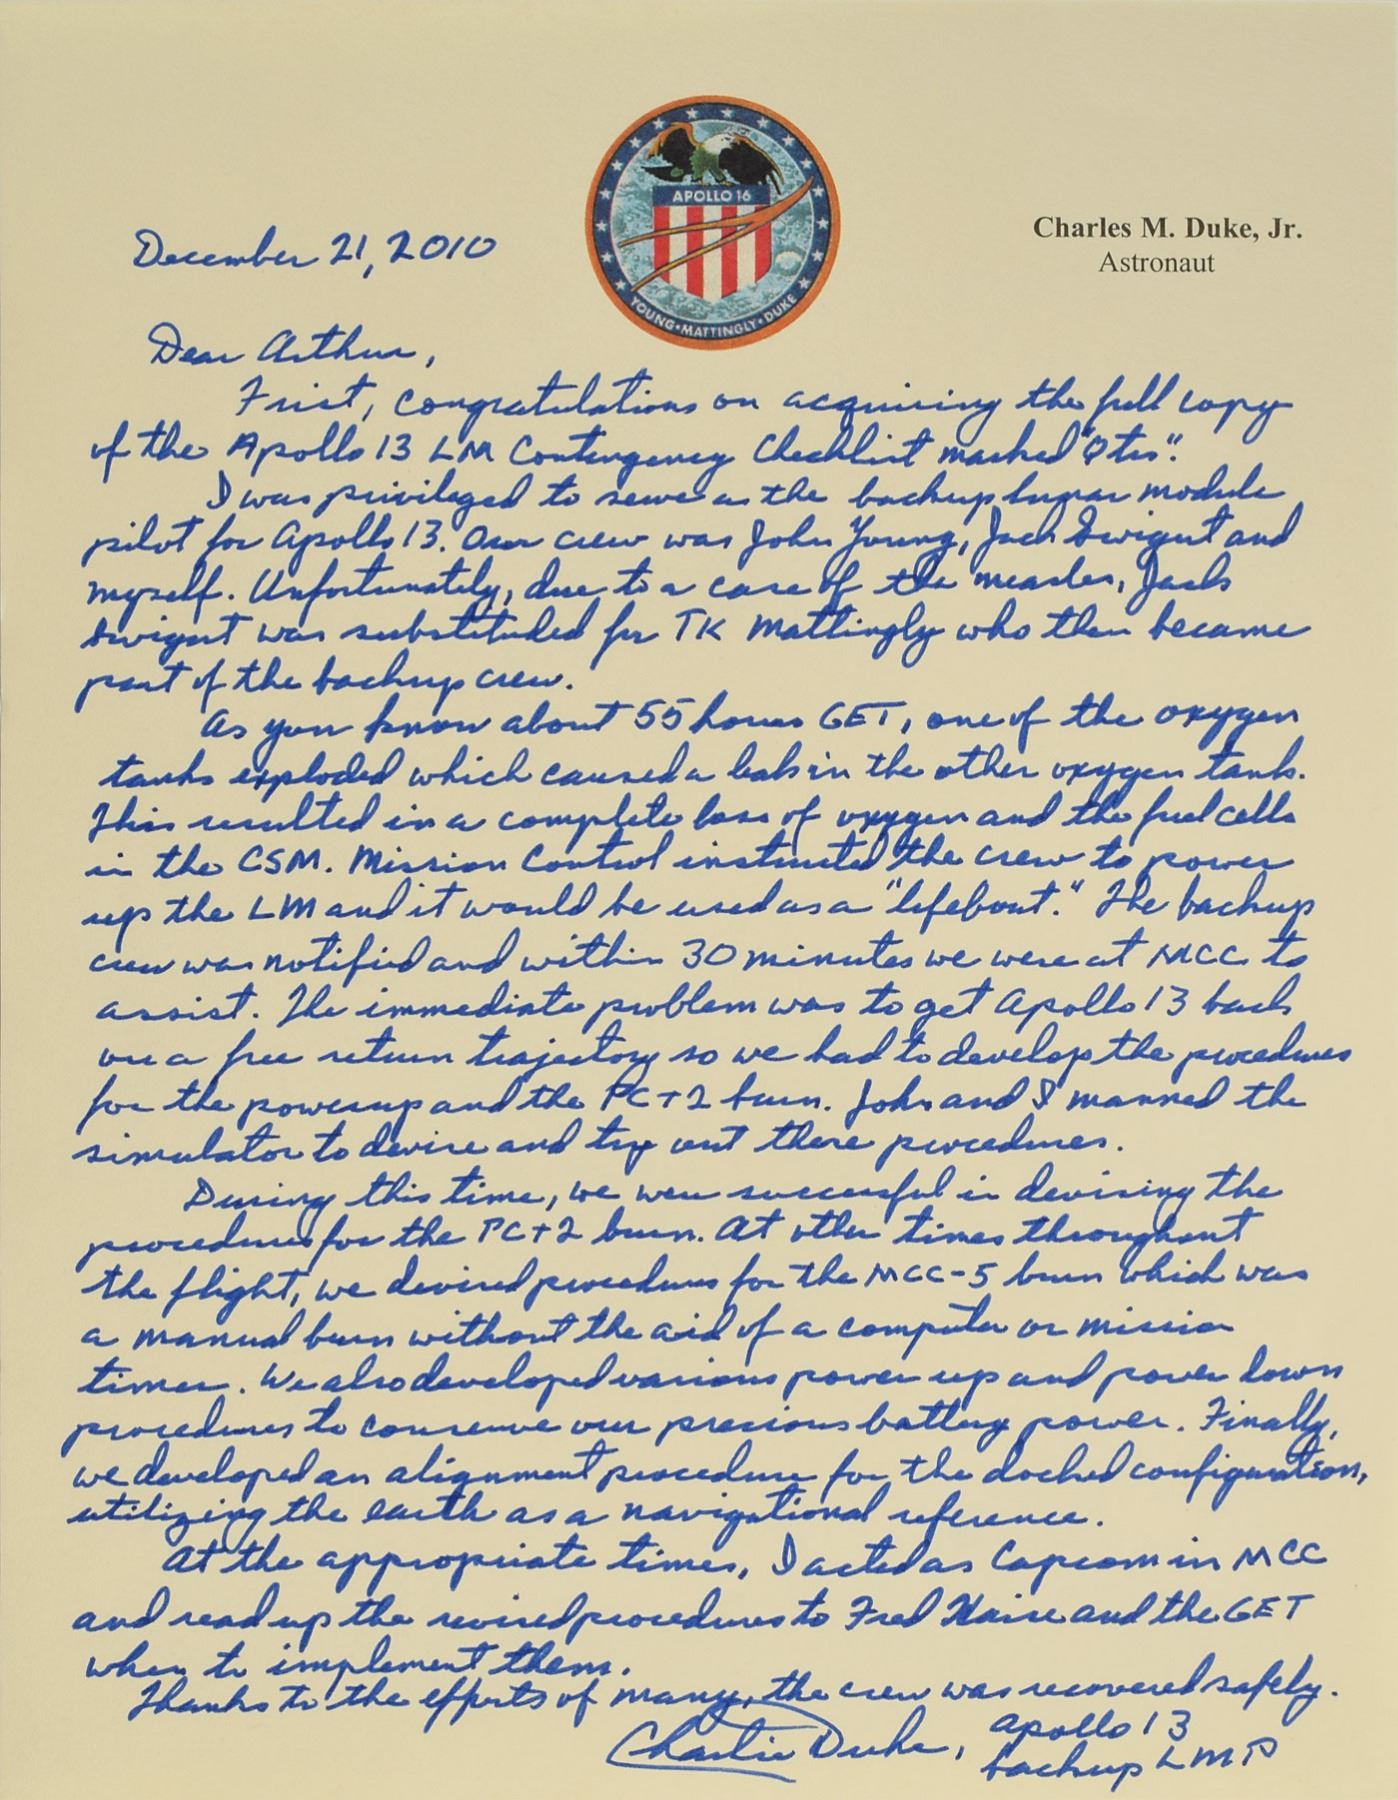 APOLLO 16
YOUNG • MATTINGLY • DUKE
Charles M. Duke, Jr.
Astronaut
December 21, 2010
Dear Arthur,
First, congratulations on acquiring the full copy
of the Apollo 13 LM Contingency Checklist marked "Qties".
I was privileged to serve as the backup lunar module
pilot for Apollo 13. Our crew was John Young, Jack Swigert and
myself. Unfortunately, due to a case of the measles, Jack
Swigert was substituted for TK Mattingly who then became
part of the backup crew.
As you know about 55 hours GET, one of the oxygen
tanks exploded which caused a leak in the other oxygen tank.
This resulted in a complete loss of oxygen and the fuel cells
in the CSM. Mission Control instructed the crew to power
up the LM and it would be used as a "lifeboat." The backup
crew was notified and within 30 minutes we were at MCC to
assist. The immediate problem was to get Apollo 13 back
on a free return trajectory so we had to develop the procedures
for the powerup and the PC+2 burn. John and I manned the
simulator to devise and try out these procedures.
During this time, we were successful in devising the
procedures for the PC+2 burn. At other times throughout
the flight, we devised procedures for the MCC-5 burn which was
a manual burn without the aid of a computer or mission
timer. We also developed various power up and power down
procedures to conserve our precious battery power. Finally,
we developed an alignment procedure for the docked configuration,
utilizing the earth as a navigational reference.
At the appropriate times, I acted as Capcom in MCC
and read up the revised procedures to Fred Haise and the GET
when to implement them.
Thanks to the efforts of many, the crew was recovered safely.
Charlie Duke, Apollo 13
backup LMP